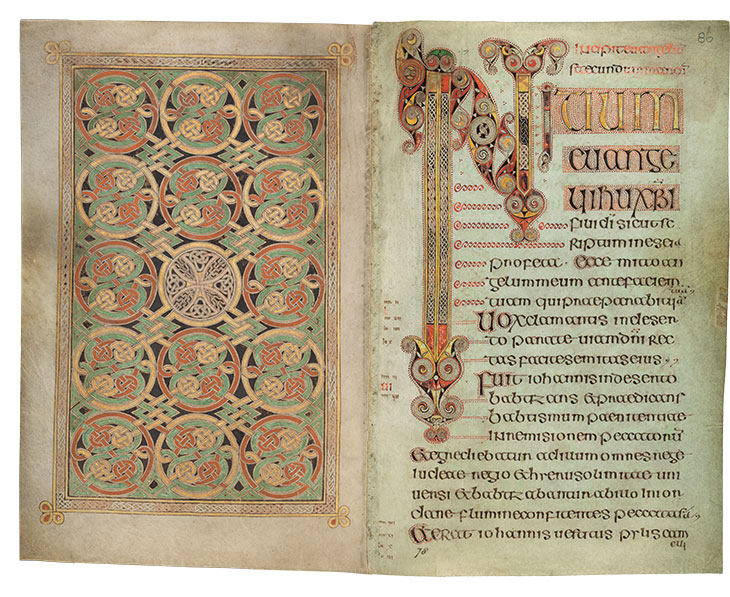 86
INITIUM
euange
lii ihu xpi
fili di sicut sc
riptum in eseia
profeta · ecce mitto an
gelum meum ante faciem
tuam qui praeparabit uiā
tuam
Uox clamantis in deser
to parate uiam dñi rec
tas facite semitas eius
Fuit iohannis in deserto
babtizans & praedicans
babtismum paenitentiae
in remisionem peccatorū
& egrediebatur ad illum omnes
iudeae regio & hierusolimitae uni
uersi & babtizabantur ab illo in ior
dane flumine confitentes peccata sua
& erat iohannis uestitus pylis cam
elli
78